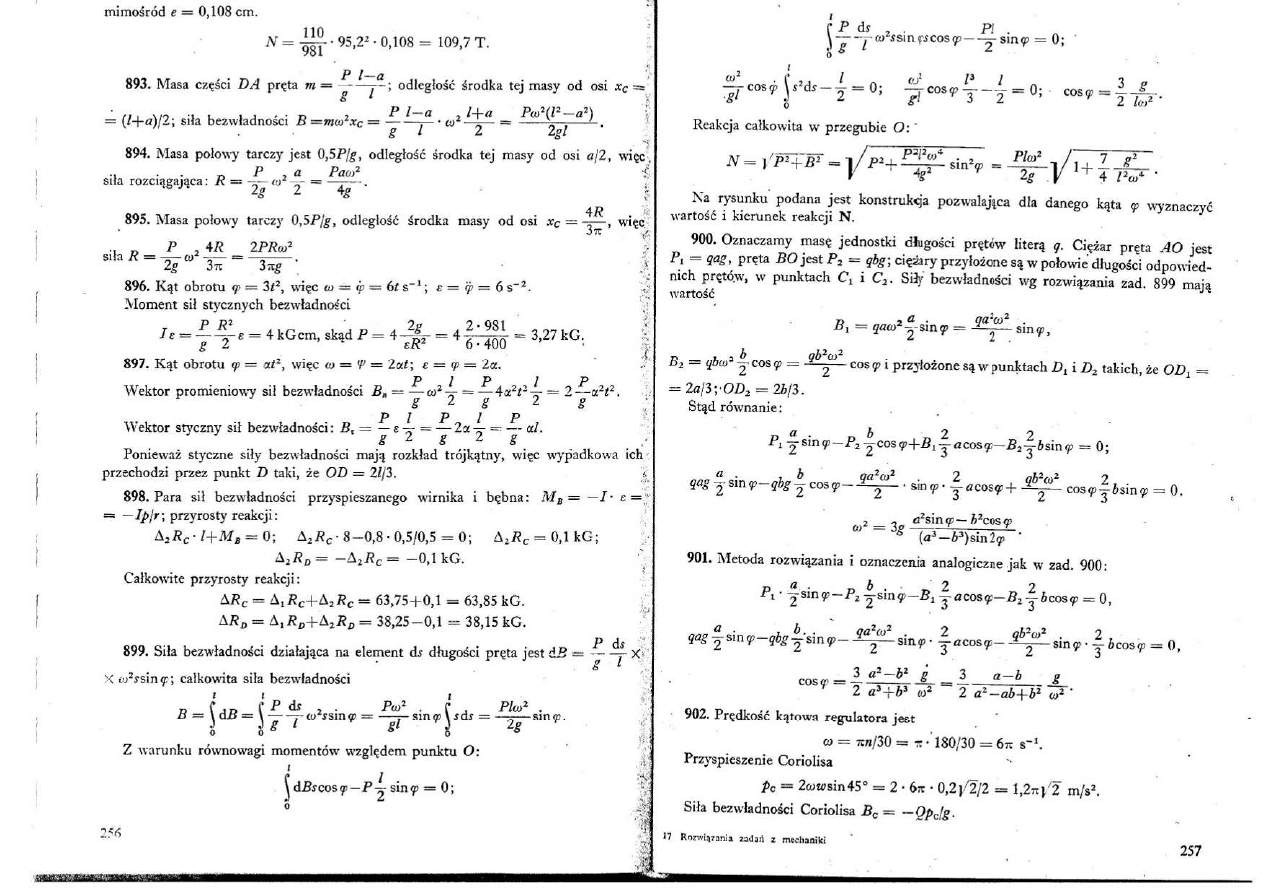 mimośród e = 0,108 cm.
N = 110/981 · 95,2² · 0,108 = 109,7 T.
893. Masa części DA pręta m = P/g · (l—a)/l; odległość środka tej masy od osi x_C =
= (l+a)/2; siła bezwładności B = mω²x_C = P/g · (l—a)/l · ω² (l+a)/2 = Pω²(l²—a²)/2gl.
894. Masa połowy tarczy jest 0,5P/g, odległość środka tej masy od osi a/2, więc
siła rozciągająca: R = P/2g ω² a/2 = Paω²/4g.
895. Masa połowy tarczy 0,5P/g, odległość środka masy od osi x_C = 4R/3π, więc
siła R = P/2g ω² 4R/3π = 2PRω²/3πg.
896. Kąt obrotu φ = 3t², więc ω = φ̇ = 6t s⁻¹; ε = φ̈ = 6 s⁻².
Moment sił stycznych bezwładności
Iε = P/g R²/2 ε = 4 kGcm, skąd P = 4 2g/εR² = 4 2·981/6·400 = 3,27 kG.
897. Kąt obrotu φ = αt², więc ω = φ = 2αt; ε = φ = 2α.
Wektor promieniowy sił bezwładności Bₙ = P/g ω² l/2 = P/g 4α²t² l/2 = 2 P/g α²t².
Wektor styczny sił bezwładności: B_t = P/g ε l/2 = P/g 2α l/2 = P/g αl.
Ponieważ styczne siły bezwładności mają rozkład trójkątny, więc wypadkowa ich
przechodzi przez punkt D taki, że OD = 2l/3.
898. Para sił bezwładności przyspieszanego wirnika i bębna: M_B = —I· ε =
= —Ip/r; przyrosty reakcji:
Δ₂R_C · l+M_B = 0; Δ₂R_C · 8—0,8 · 0,5/0,5 = 0; Δ₂R_C = 0,1 kG;
Δ₂R_D = —Δ₂R_C = —0,1 kG.
Całkowite przyrosty reakcji:
ΔR_C = Δ₁R_C+Δ₂R_C = 63,75+0,1 = 63,85 kG.
ΔR_D = Δ₁R_D+Δ₂R_D = 38,25—0,1 = 38,15 kG.
899. Siła bezwładności działająca na element ds długości pręta jest dB = P/g ds/l ×
× ω²s sin φ; całkowita siła bezwładności
B = ∫₀ˡ dB = ∫₀ˡ P/g ds/l ω²s sin φ = Pω²/gl sin φ ∫₀ˡ s ds = Plω²/2g sin φ.
Z warunku równowagi momentów względem punktu O:
∫₀ˡ dBs cos φ — P l/2 sin φ = 0;
256
∫₀ˡ P/g ds/l ω²s sin φ s cos φ — Pl/2 sin φ = 0;
ω²/gl cos φ ∫₀ˡ s²ds — l/2 = 0; ω²/gl cos φ l³/3 — l/2 = 0; cos φ = 3/2 g/lω².
Reakcja całkowita w przegubie O:
N = √(P²+B²) = √(P² + P²l²ω⁴/4g² sin²φ) = Plω²/2g √(1 + 7/4 g²/l²ω⁴).
Na rysunku podana jest konstrukcja pozwalająca dla danego kąta φ wyznaczyć
wartość i kierunek reakcji N.
900. Oznaczamy masę jednostki długości prętów literą q. Ciężar pręta AO jest
P₁ = qag, pręta BO jest P₂ = qbg; ciężary przyłożone są w połowie długości odpowied-
nich prętów, w punktach C₁ i C₂. Siły bezwładności wg rozwiązania zad. 899 mają
wartość
B₁ = qaω² a/2 sin φ = qa²ω²/2 sin φ,
B₂ = qbω² b/2 cos φ = qb²ω²/2 cos φ i przyłożone są w punktach D₁ i D₂ takich, że OD₁ =
= 2a/3; OD₂ = 2b/3.
Stąd równanie:
P₁ a/2 sin φ — P₂ b/2 cos φ + B₁ 2/3 a cos φ — B₂ 2/3 b sin φ = 0;
qag a/2 sin φ — qbg b/2 cos φ — qa²ω²/2 · sin φ · 2/3 a cos φ + qb²ω²/2 cos φ 2/3 b sin φ = 0.
ω² = 3g (a² sin φ — b² cos φ)/((a³—b³) sin 2φ).
901. Metoda rozwiązania i oznaczenia analogiczne jak w zad. 900:
P₁ · a/2 sin φ — P₂ b/2 sin φ — B₁ 2/3 a cos φ — B₂ 2/3 b cos φ = 0,
qag a/2 sin φ — qbg b/2 · sin φ — qa²ω²/2 sin φ · 2/3 a cos φ — qb²ω²/2 sin φ · 2/3 b cos φ = 0,
cos φ = 3/2 (a²—b²)/(a³+b³) g/ω² = 3/2 (a—b)/(a²—ab+b²) g/ω².
902. Prędkość kątowa regulatora jest
ω = πn/30 = π · 180/30 = 6π s⁻¹.
Przyspieszenie Coriolisa
p_c = 2ωw sin 45° = 2 · 6π · 0,2√2/2 = 1,2π√2 m/s².
Siła bezwładności Coriolisa B_C = —Qp_c/g.
17 Rozwiązania zadań z mechaniki
257